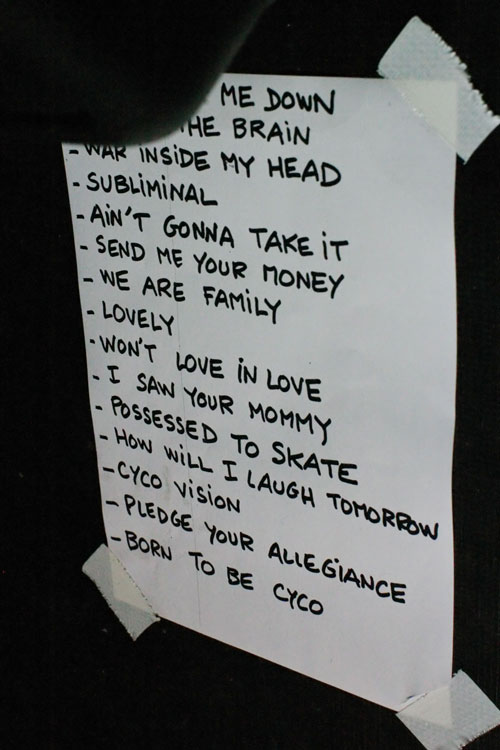 ME DOWN
THE BRAIN
- WAR INSIDE MY HEAD
- SUBLIMINAL
- AIN'T GONNA TAKE IT
- SEND ME YOUR MONEY
- WE ARE FAMILY
- LOVELY
- WON'T LOVE IN LOVE
- I SAW YOUR MOMMY
- POSSESSED TO SKATE
- HOW WILL I LAUGH TOMORROW
- CYCO VISION
- PLEDGE YOUR ALLEGIANCE
- BORN TO BE CYCO